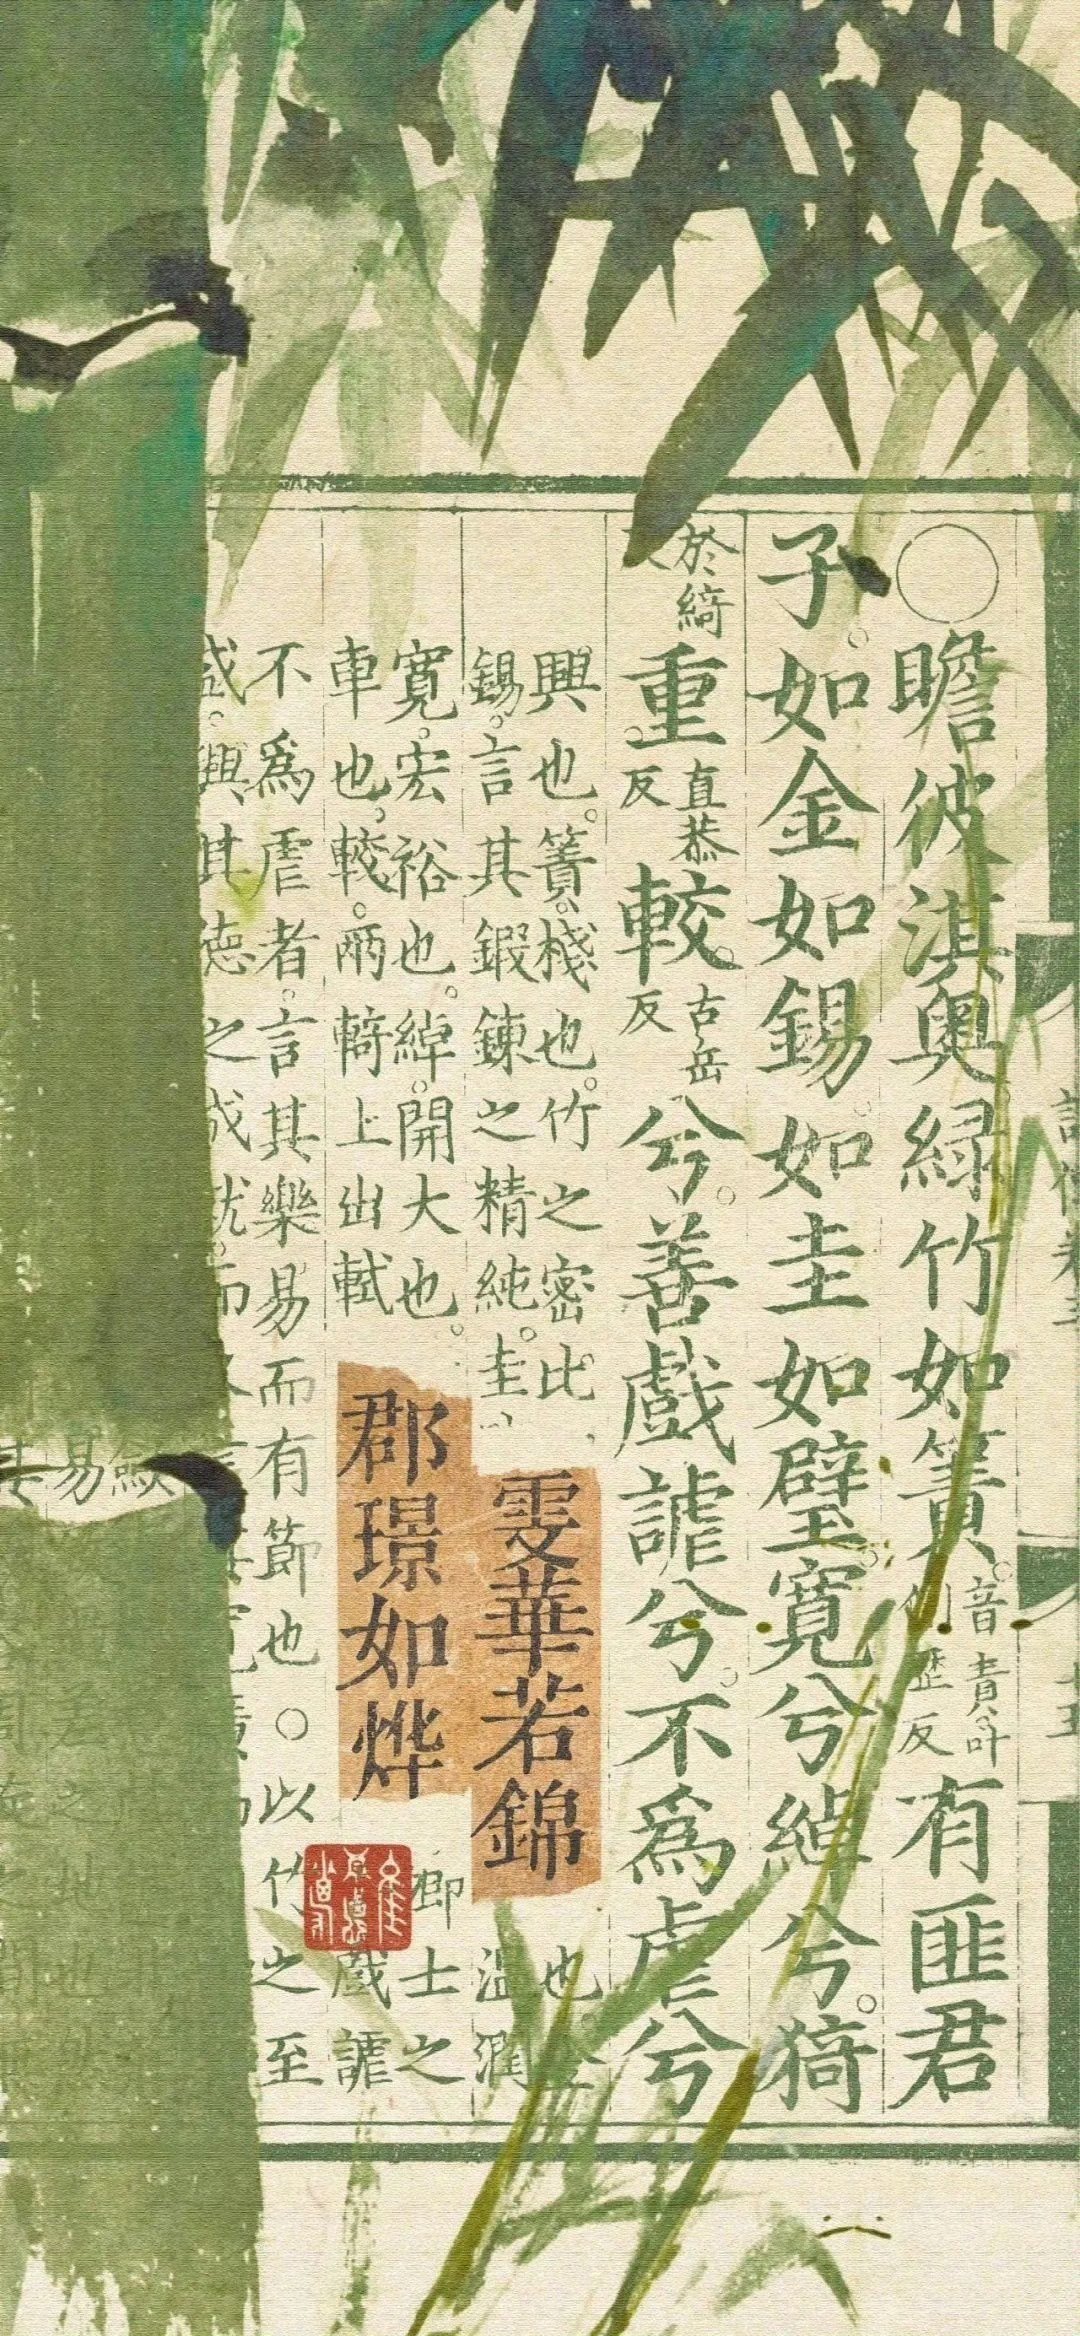 ○瞻彼淇奧綠竹如簀音責叶側歷反有匪君
子如金如錫如圭如璧寬兮綽兮猗
於綺
重直恭反較古岳反兮善戲謔兮不為虐兮
興也簀棧也竹之密比
錫言其鍛鍊之精純圭
也
溫潤
雯華若錦
寬宏裕也綽開大也
車也較兩輢上出軾
郡璟如烨
卿士之
戲謔
不為虐者言其樂易而有節也○以竹之至
盛興其德之成就而
易歛